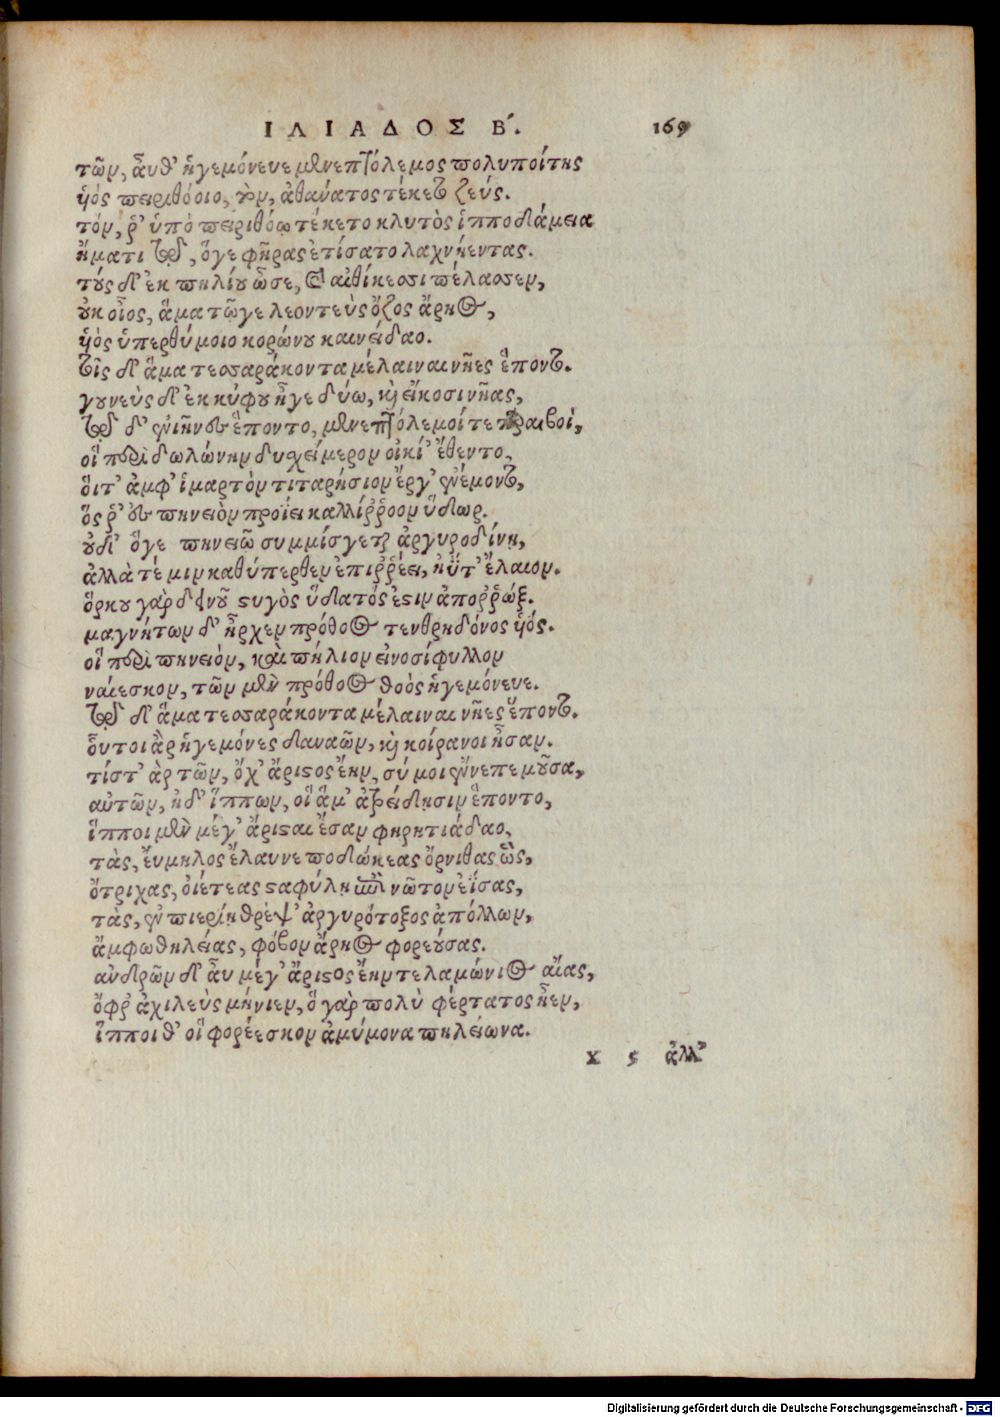 ΙΛΙΑΔΟΣ Β΄. 169
τῶν, αὖθ' ἡγεμόνευε μενεπτόλεμος πολυποίτης
υἱὸς πειριθόοιο, τὸν, ἀθάνατος τέκετο ζεύς.
τόν, ῥ' ὑπὸ πειριθόῳ τέκετο κλυτὸς ἱπποδάμεια
ἤματι τῷ, ὅγε φῆρας ἐτίσατο λαχνήεντας.
τοὺς δ' ἐκ πηλίου ὦσε, καὶ αἰθίκεσσι πέλασσεν,
οὐκ οἶος, ἅμα τῷγε λεοντεὺς ὄζος ἄρηος,
υἱὸς ὑπερθύμοιο κορώνου καινείδαο.
τοῖς δ' ἅμα τεσσαράκοντα μέλαιναι νῆες ἕποντο.
γουνεὺς δ' ἐκ κύφου ἦγε δύω, καὶ εἴκοσι νῆας,
τῷ δ' ἐνιῆνες ἕποντο, μενεπτόλεμοί τε περαιβοί,
οἳ περὶ δωλώνην δυσχείμερον οἰκί' ἔθεντο,
οἵτ' ἀμφ' ἱμαρτὸν τιταρήσιον ἔργ' ἐνέμοντο,
ὅς ῥ' ἐς πηνειὸν προΐει καλλίῤῥοον ὕδωρ.
οὐδ' ὅγε πηνειῶ συμμίσγεται ἀργυροδίνῃ,
ἀλλὰ τέ μιν καθύπερθεν ἐπιῤῥέει, ἠΰτ' ἔλαιον.
ὅρκου γὰρ δεινοῦ στυγὸς ὕδατός ἐστιν ἀποῤῥώξ.
μαγνήτων δ' ἦρχεν πρόθοος τενθρηδόνος υἱός.
οἳ περὶ πηνειὸν, καὶ πήλιον εἰνοσίφυλλον
ναίεσκον, τῶν μὲν πρόθοος θοὸς ἡγεμόνευε.
τῷ δ' ἅμα τεσσαράκοντα μέλαιναι νῆες ἕποντο.
οὗτοι ἂρ ἡγεμόνες δαναῶν, καὶ κοίρανοι ἦσαν.
τίς τ' ἂρ τῶν, ὄχ' ἄριστος ἔην, σύ μοι ἔννεπε μοῦσα,
αὐτῶν, ἠδ' ἵππων, οἳ ἅμ' ἀτρείδῃσιν ἕποντο,
ἵπποι μὲν μέγ' ἄρισται ἔσαν φηρητιάδαο,
τὰς, εὔμηλος ἔλαυνε ποδώκεας ὄρνιθας ὣς,
ὄτριχας, οἰέτεας σταφύλῃ ἐπὶ νῶτον ἐΐσας,
τὰς, ἐν πιερίῃ θρέψ' ἀργυρότοξος ἀπόλλων,
ἄμφω θηλείας, φόβον ἄρηος φορεούσας.
ἀνδρῶν δ' αὖ μέγ' ἄριστος ἔην τελαμώνιος αἴας,
ὄφρ' ἀχιλεὺς μήνιεν, ὃ γὰρ πολὺ φέρτατος ἦεν,
ἵπποι θ' οἳ φορέεσκον ἀμύμονα πηλείωνα.
x 5 ἀλλ'
Digitalisierung gefördert durch die Deutsche Forschungsgemeinschaft - DFG